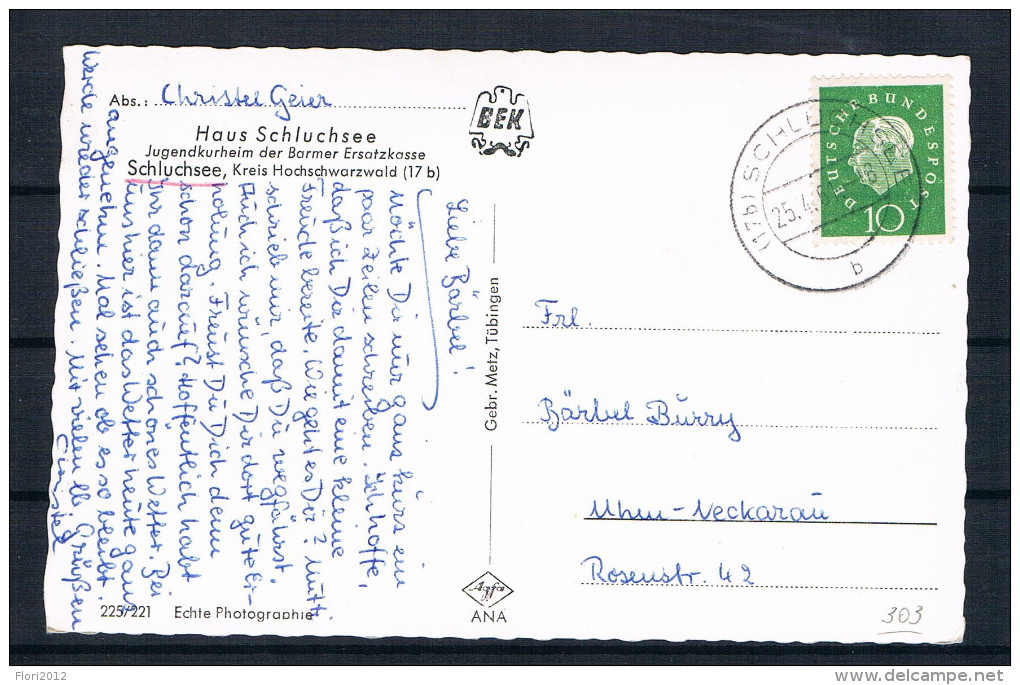 Abs.: Christel Geier
Haus Schluchsee
Jugendkurheim der Barmer Ersatzkasse
Schluchsee, Kreis Hochschwarzwald (17 b)
BEK
Liebe Bärbel!
Möchte Dir nur ganz kurz ein
paar Zeilen schreiben. Ich hoffe,
daß ich Dir damit eine kleine
Freude bereite. Wie geht es Dir? Mutti
schrieb mir, daß Du wegfährst.
Auch ich wünsche Dir dort gute Er-
holung. Freust Du Dich denn
schon darauf? Hoffentlich habt
Ihr dann auch schönes Wetter. Bei
uns hier ist das Wetter heute ganz
angenehm. Mal sehen ob es so bleibt.
Werde wieder schließen. Mit vielen lb. Grüßen
Christel
225/221 Echte Photographie
Gebr. Metz, Tübingen
Agfa
ANA
DEUTSCHE BUNDESPOST
10
(17b) SCHLUCHSEE
25.4.
b
Frl.
Bärbel Burry
Mhm-Neckarau
Rosenstr. 42
303
Flori2012
delcampe.net